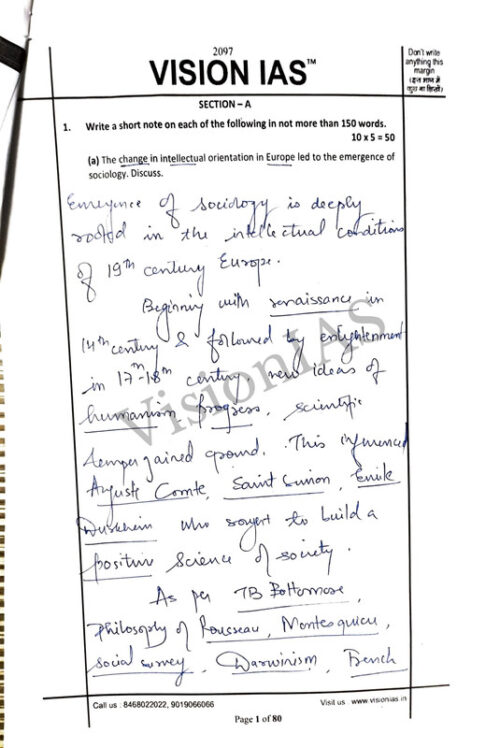 2097
VISION IAS™
Don't write
anything this
margin
(इस भाग में
कुछ ना लिखें)
SECTION – A
1. Write a short note on each of the following in not more than 150 words.
10 x 5 = 50
(a) The change in intellectual orientation in Europe led to the emergence of
sociology. Discuss.
Emergence of sociology is deeply
rooted in the intellectual conditions
of 19th century Europe.
Beginning with renaissance in
14th century & followed by enlightenment
in 17th-18th century, new ideas of
humanism progress, scientific
temper gained ground. This influenced
Auguste Comte, Saint Simon, Emile
Durkheim who sought to build a
positive science of society.
As per TB Bottomore,
Philosophy of Rousseau, Montesquieu,
social survey, Darwinism, French
VisionIAS
Call us : 8468022022, 9019066066
Visit us : www.visionias.in
Page 1 of 80